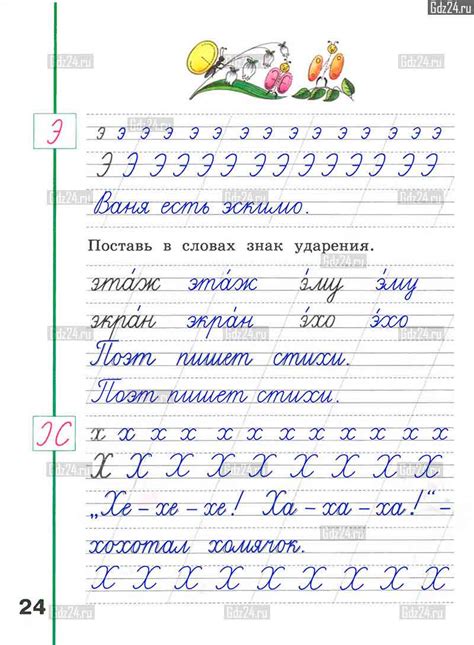 Gdz24.ru
Э
э э э э э э э э э э э э э э э
Э Э Э Э Э Э Э Э Э Э Э Э Э
Ваня есть эскимо.
Поставь в словах знак ударения.
эта́ж эта́ж э́му э́му
экра́н экра́н э́хо э́хо
Поэт пишет стихи.
Поэт пишет стихи.
Х
х х х х х х х х х х х х
Х Х Х Х Х Х Х Х Х Х
„Хе - хе - хе! Ха - ха - ха!“ -
хохотал хомячок.
Х Х Х Х Х Х Х Х Х Х
24